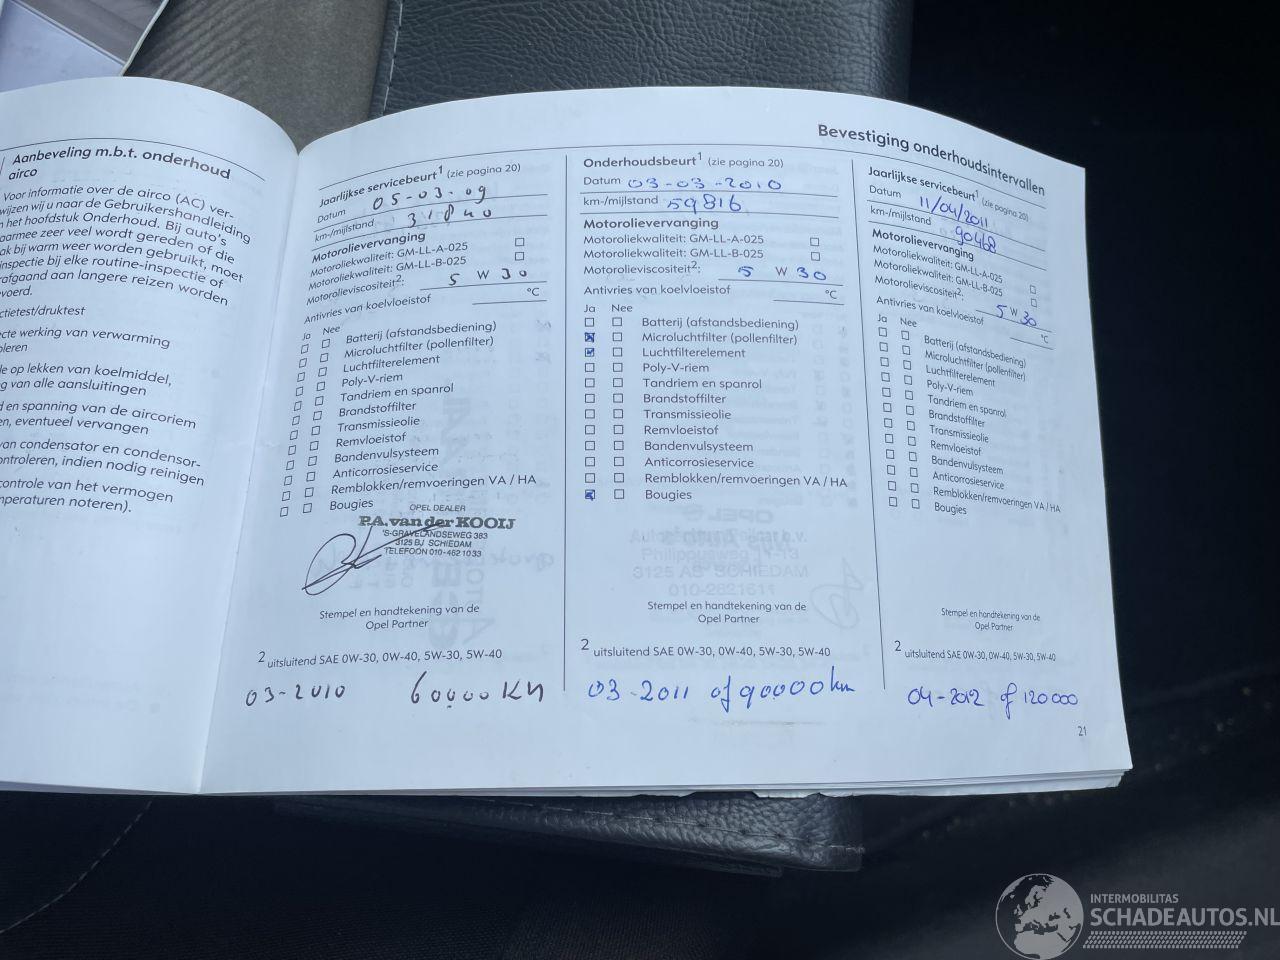 Aanbeveling m.b.t. onderhoud
airco
Voor informatie over de airco (AC) ver-
wijzen wij u naar de Gebruikershandleiding
het hoofdstuk Onderhoud. Bij auto's
waarmee zeer veel wordt gereden of die
bij warm weer worden gebruikt, moet
inspectie bij elke routine-inspectie of
aan langere reizen worden
cte werking van verwarming
op lekken van koelmiddel,
van alle aansluitingen
en spanning van de aircoriem
eventueel vervangen
van condensator en condensor-
indien nodig reinigen
controle van het vermogen
noteren).
Bevestiging onderhoudsintervallen
Jaarlijkse servicebeurt¹ (zie pagina 20)
Datum 05-03-09
km-/mijlstand 31840
Motorolievervanging
Motoroliekwaliteit: GM-LL-A-025
Motoroliekwaliteit: GM-LL-B-025
Motorolieviscositeit²: 5 W 30
Antivries van koelvloeistof °C
Ja Nee
Batterij (afstandsbediening)
Microluchtfilter (pollenfilter)
Luchtfilterelement
Poly-V-riem
Tandriem en spanrol
Brandstoffilter
Transmissieolie
Remvloeistof
Bandenvulsysteem
Anticorrosieservice
Remblokken/remvoeringen VA / HA
Bougies
OPEL DEALER
P.A. van der KOOIJ
'S-GRAVELANDSEWEG 383
3125 BJ SCHIEDAM
TELEFOON 010-462 10 33
Stempel en handtekening van de
Opel Partner
2 uitsluitend SAE 0W-30, 0W-40, 5W-30, 5W-40
03-2010 60.000 KM
Onderhoudsbeurt¹ (zie pagina 20)
Datum 03-03-2010
km-/mijlstand 59816
Motorolievervanging
Motoroliekwaliteit: GM-LL-A-025
Motoroliekwaliteit: GM-LL-B-025
Motorolieviscositeit²: 5 W 30
Antivries van koelvloeistof °C
Ja Nee
Batterij (afstandsbediening)
Microluchtfilter (pollenfilter)
Luchtfilterelement
Poly-V-riem
Tandriem en spanrol
Brandstoffilter
Transmissieolie
Remvloeistof
Bandenvulsysteem
Anticorrosieservice
Remblokken/remvoeringen VA / HA
Bougies
OPEL
b.v.
Philippusweg
3125 AS SCHIEDAM
010-2621611
Stempel en handtekening van de
Opel Partner
2 uitsluitend SAE 0W-30, 0W-40, 5W-30, 5W-40
03-2011 of 90.000 km
Jaarlijkse servicebeurt¹ (zie pagina 20)
Datum 11/04/2011
km-/mijlstand 90468
Motorolievervanging
Motoroliekwaliteit: GM-LL-A-025
Motoroliekwaliteit: GM-LL-B-025
Motorolieviscositeit²: 5 W 30
Antivries van koelvloeistof °C
Ja Nee
Batterij (afstandsbediening)
Microluchtfilter (pollenfilter)
Luchtfilterelement
Poly-V-riem
Tandriem en spanrol
Brandstoffilter
Transmissieolie
Remvloeistof
Bandenvulsysteem
Anticorrosieservice
Remblokken/remvoeringen VA / HA
Bougies
Stempel en handtekening van de
Opel Partner
2 uitsluitend SAE 0W-30, 0W-40, 5W-30, 5W-40
04-2012 of 120 000
21
INTERMOBILITAS
SCHADEAUTOS.NL